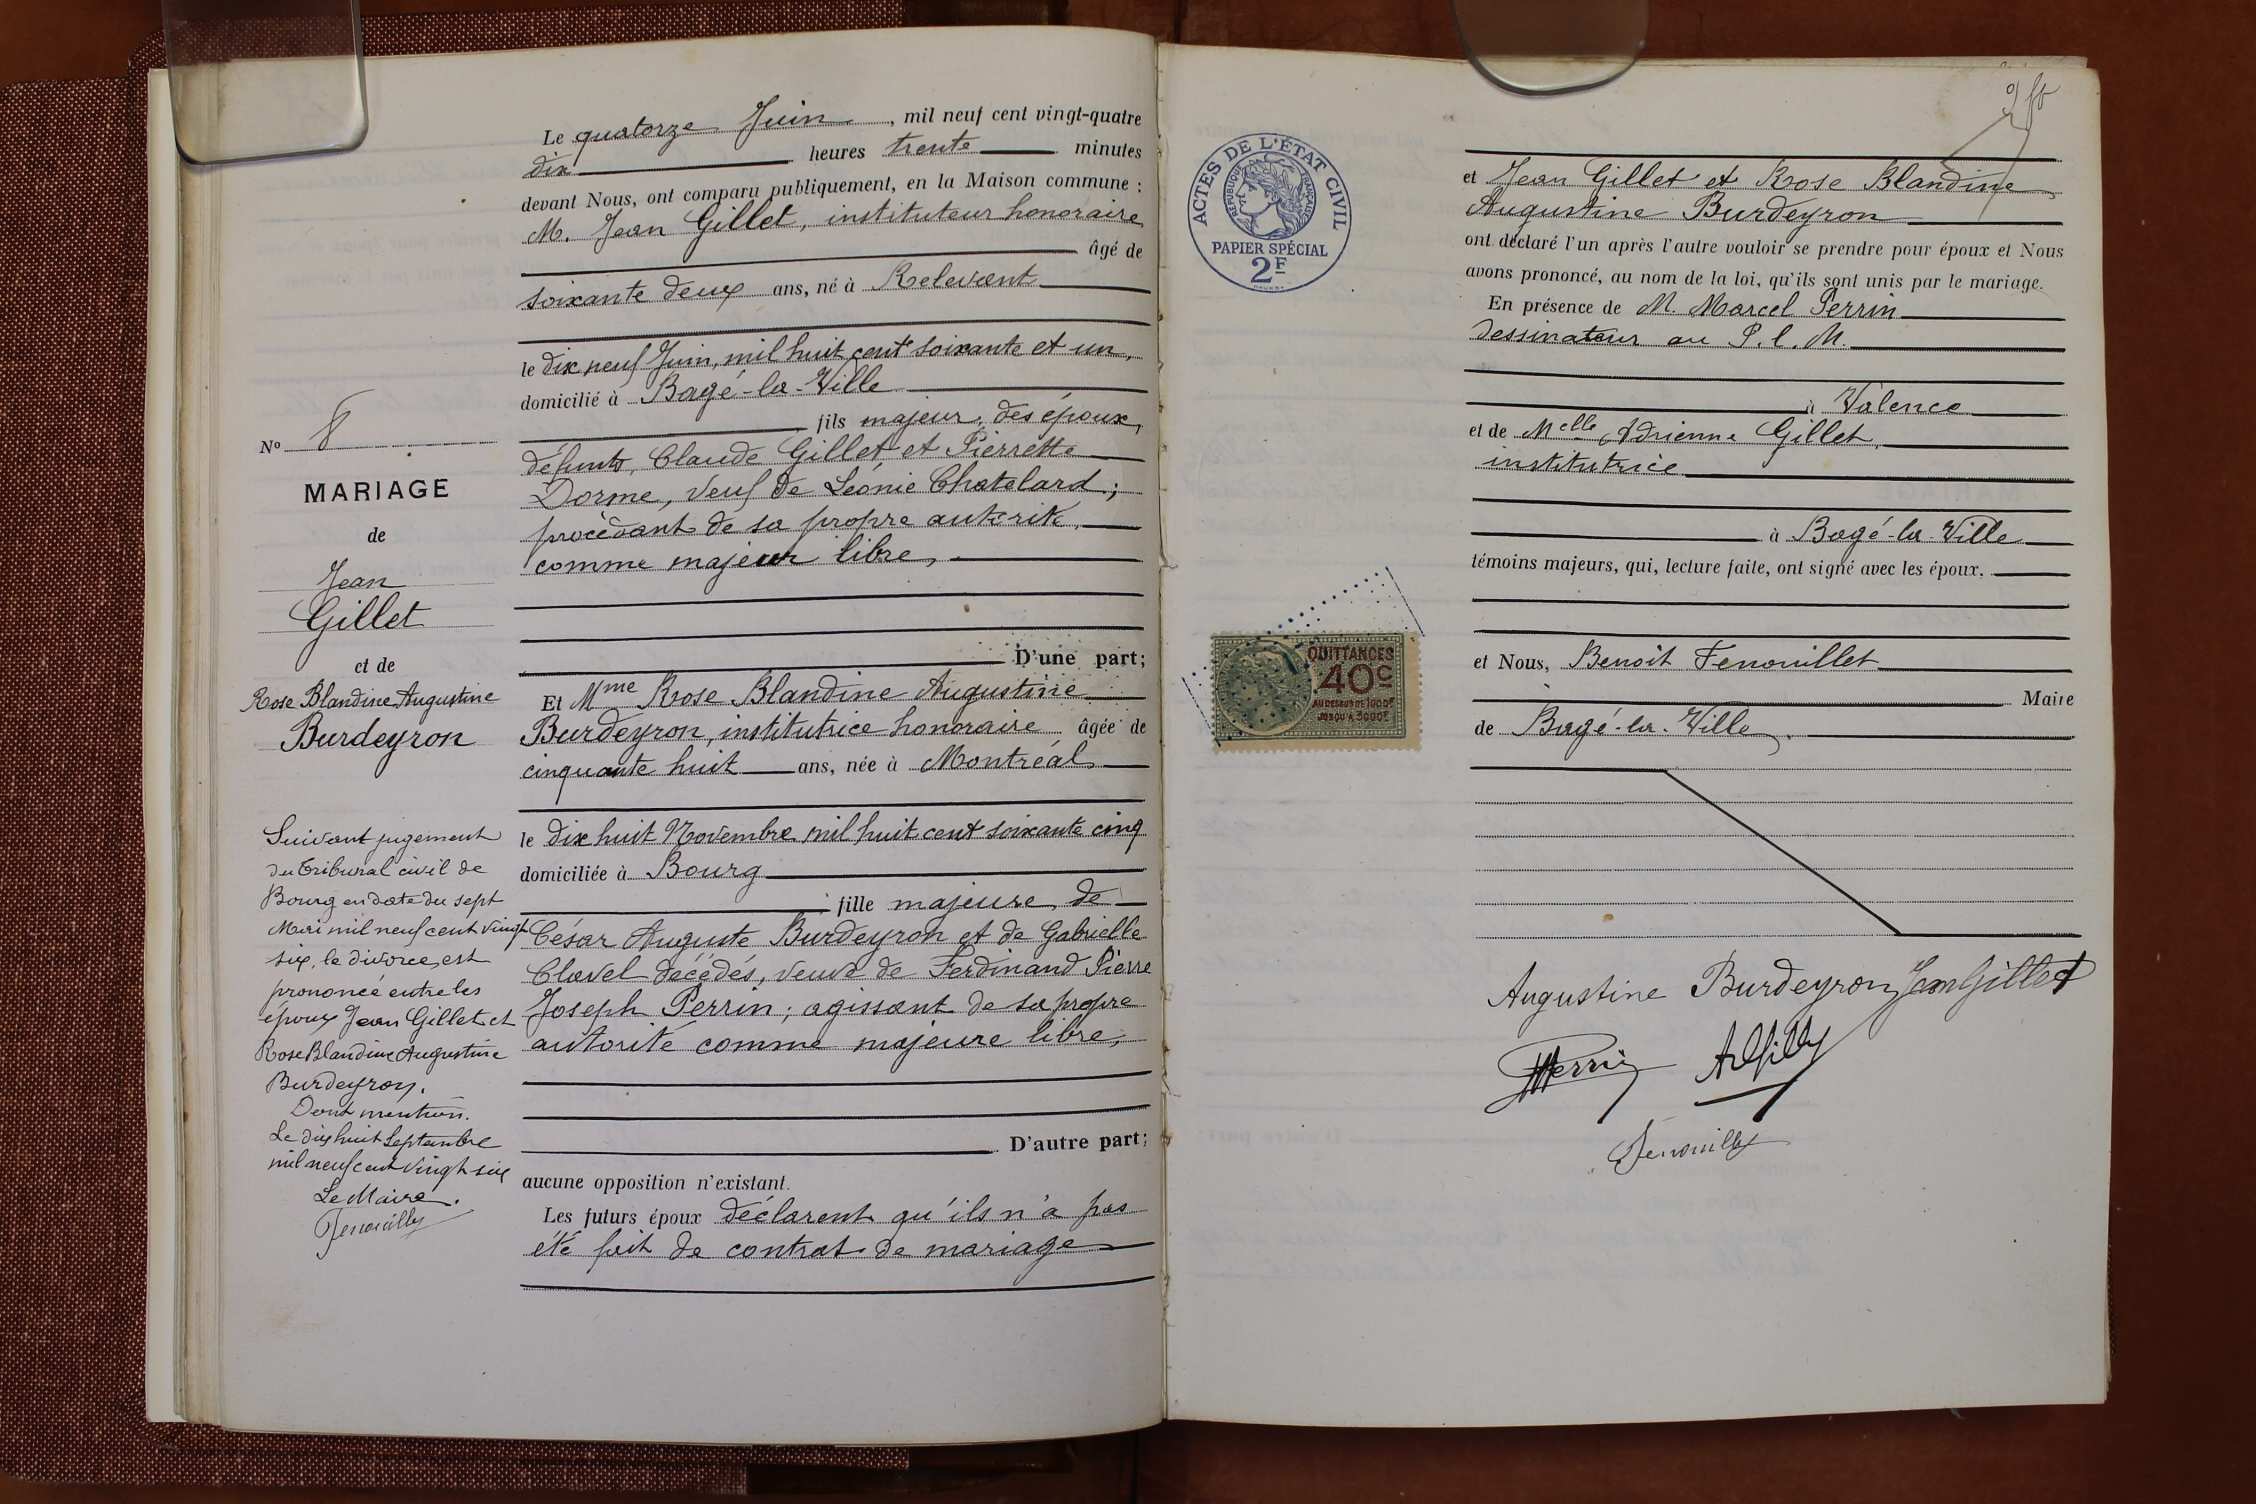 Le quatorze Juin, mil neuf cent vingt-quatre
dix heures trente minutes
devant Nous, ont comparu publiquement, en la Maison commune :
M. Jean Gillet, instituteur honoraire
âgé de
soixante deux ans, né à Relevant
le dix neuf Juin, mil huit cent soixante et un,
domicilié à Bagé-la-Ville
fils majeur, des époux,
défunts, Claude Gillet et Pierrette
Dorme, veuf de Léonie Chatelard ;
procédant de sa propre autorité,
comme majeur libre,
D'une part;
Et Mme Rose Blandine Augustine
Burdeyron, institutrice honoraire âgée de
cinquante huit ans, née à Montréal
le dix huit Novembre mil huit cent soixante cinq
domiciliée à Bourg
fille majeure, de
César Auguste Burdeyron et de Gabrielle
Clavel décédés, veuve de Ferdinand Pierre
Joseph Perrin ; agissant de sa propre
autorité comme majeure libre,
D'autre part;
aucune opposition n'existant.
Les futurs époux déclarent qu'ils n'a pas
été fait de contrat de mariage
No 8
MARIAGE
de
Jean
Gillet
et de
Rose Blandine Augustine
Burdeyron
Suivant jugement
du Tribunal civil de
Bourg en date du sept
Mai mil neuf cent vingt
six, le divorce est
prononcé entre les
époux Jean Gillet et
Rose Blandine Augustine
Burdeyron.
Dont mention.
Le dix huit Septembre
mil neuf cent vingt six
Le Maire.
Fenouillet
ACTES DE L'ÉTAT CIVIL
RÉPUBLIQUE FRANÇAISE
PAPIER SPÉCIAL
2F
QUITTANCES
40c
AU DESSUS DE 1000F
JUSQU'A 3000F
et Jean Gillet et Rose Blandine
Augustine Burdeyron
ont déclaré l'un après l'autre vouloir se prendre pour époux et Nous
avons prononcé, au nom de la loi, qu'ils sont unis par le mariage.
En présence de M. Marcel Perrin
dessinateur au P. L. M.
à Valence
et de Melle Adrienne Gillet,
institutrice
à Bagé-la-Ville
témoins majeurs, qui, lecture faite, ont signé avec les époux.
et Nous, Benoit Fenouillet
Maire
de Bagé-la-Ville.
Augustine Burdeyron Jean Gillet
MPerrin
Fenouillet